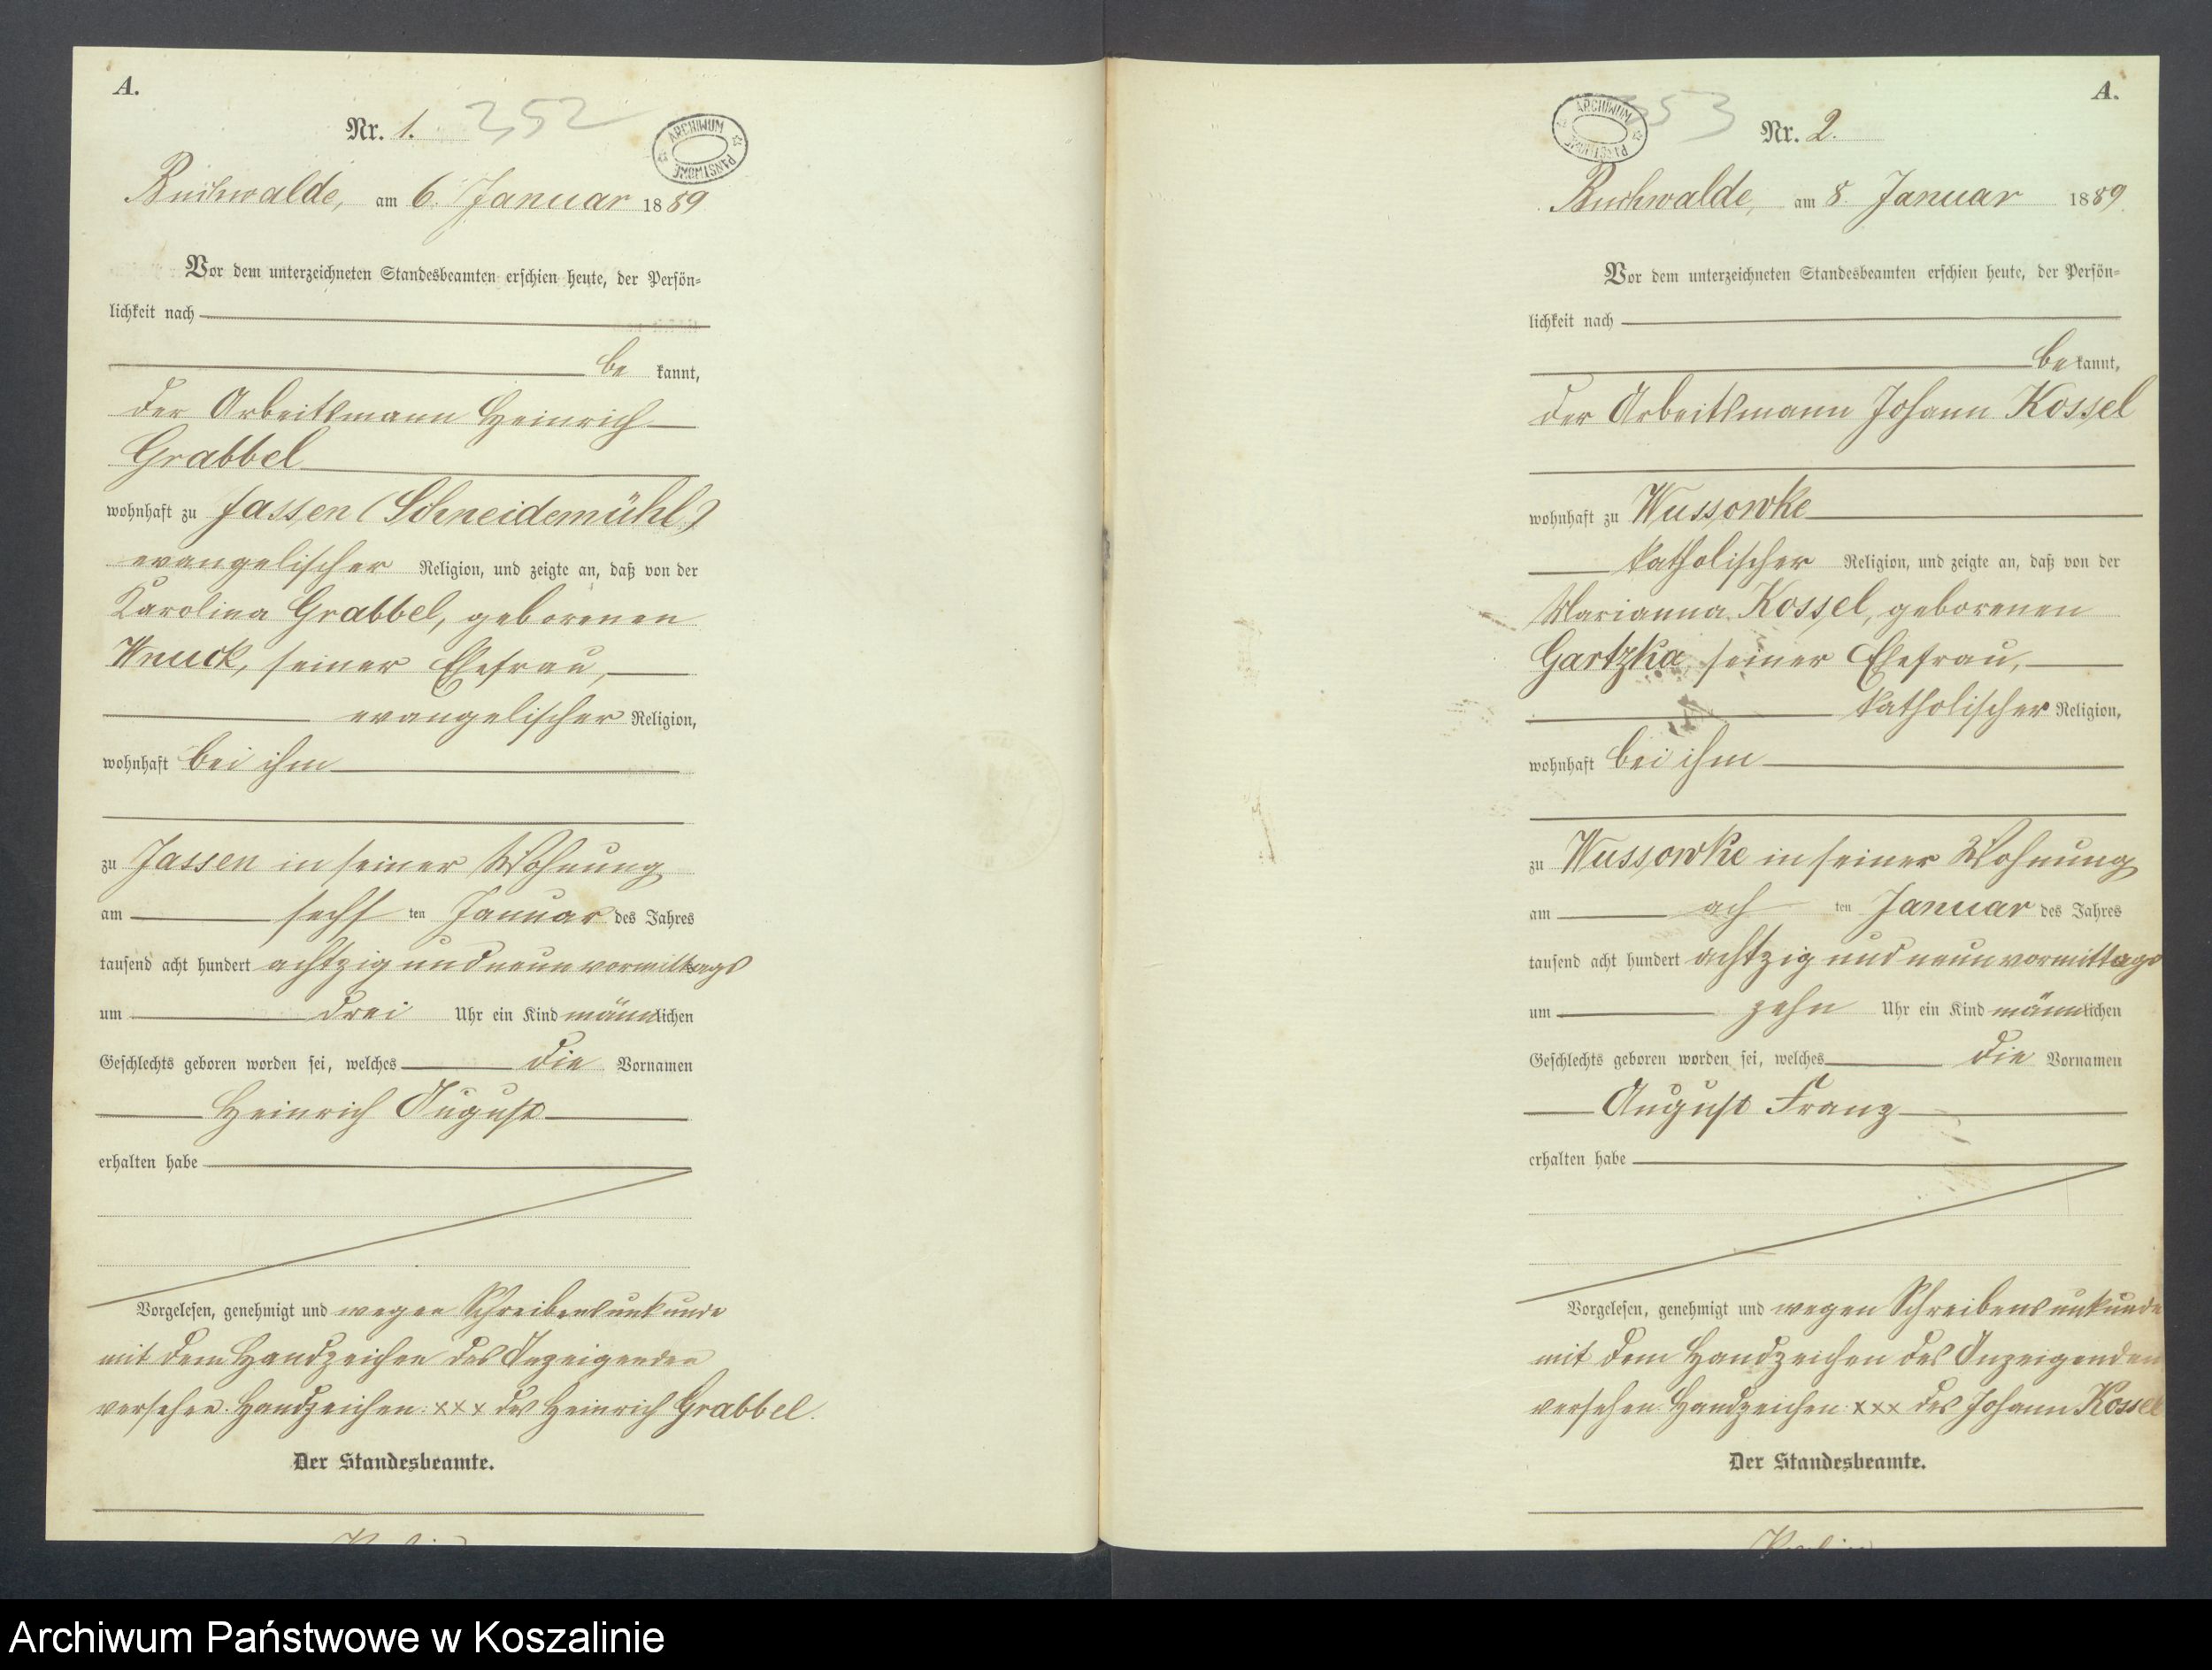 A.
Nr. 1. 252
ARCHIWUM PAŃSTWOWE
Buchwalde, am 6. Januar 1889
Vor dem unterzeichneten Standesbeamten erschien heute, der Persön-
lichkeit nach
be kannt,
der Arbeitsmann Heinrich
Grabbel
wohnhaft zu Jassen (Schneidemühl)
evangelischer Religion, und zeigte an, daß von der
Karolina Grabbel, geborenen
Wnuck, seiner Ehefrau,
evangelischer Religion,
wohnhaft bei ihm
zu Jassen in seiner Wohnung
am sechsten Januar des Jahres
tausend acht hundert achtzig und neun vormittags
um drei Uhr ein Kind männlichen
Geschlechts geboren worden sei, welches die Vornamen
Heinrich August
erhalten habe
Vorgelesen, genehmigt und wegen Schreibensunkunde
mit dem Handzeichen des Anzeigenden
versehen. Handzeichen: xxx des Heinrich Grabbel.
Der Standesbeamte.
A.
ARCHIWUM PAŃSTWOWE
353 Nr. 2.
Buchwalde, am 8. Januar 1889
Vor dem unterzeichneten Standesbeamten erschien heute, der Persön-
lichkeit nach
be kannt,
der Arbeitsmann Johann Kossel
wohnhaft zu Wussowke
katholischer Religion, und zeigte an, daß von der
Marianna Kossel, geborenen
Gartzka, seiner Ehefrau,
katholischer Religion,
wohnhaft bei ihm
zu Wussowke in seiner Wohnung
am ach ten Januar des Jahres
tausend acht hundert achtzig und neun vormittags
um zehn Uhr ein Kind männlichen
Geschlechts geboren worden sei, welches die Vornamen
August Franz
erhalten habe
Vorgelesen, genehmigt und wegen Schreibensunkunde
mit dem Handzeichen des Anzeigenden
versehen. Handzeichen: xxx des Johann Kossel
Der Standesbeamte.
Archiwum Państwowe w Koszalinie